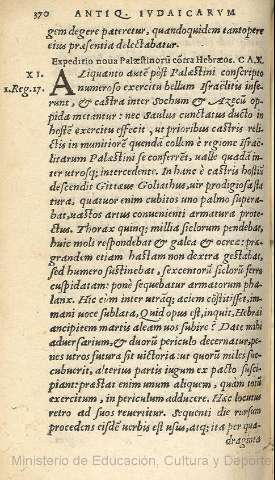 370 ANTIQ. IVDAICARVM
gem degere pateretur, quandoquidem tantopere
eius præsentia delectabatur.
Expeditio noua Palæstinorũ cõtra Hebræos. CAP.
XI.
1.Reg.17.
ALiquanto autẽ pòst Palæstini conscripto
numeroso exercitu bellum Israëlitis infe-
runt, & castra inter Sochum & Azecũ op-
pida metantur: nec Saulus cunctatus ducto in
hostẽ exercitu effecit, ut prioribus castris reli-
ctis in munitiorẽ quendã collẽ è regione Israë-
litarum Palæstini se conferrẽt, ualle quadã in-
ter utrosq; intercedente. In hanc è castris hostiũ
descendit Gittæus Goliathus, uir prodigiosa sta
tura, quatuor enim cubitos uno palmo supera-
bat, uastos artus conuenienti armatura prote-
ctus. Thorax quinq; millia siclorum pendebat,
huic moli respondebat & galea & ocreæ: præ-
grandem etiam hastam non dextra gestabat,
sed humero sustinebat, sexcentorũ siclorũ ferro
cuspidatam: ponè sequebatur armatorum pha-
lanx. Hic cùm inter utrãq; aciem cõstitisset, im-
mani uoce sublata, Quid opus est, inquit, Hebræi
ancipitem martis aleam uos subire? Date mihi
aduersarium, & duorũ periculo decernatur, pe-
nes utros futura sit uictoria: ut quorũ miles suc-
cubuerit, alterius partis iugum ex pacto susci-
piant: præstat enim unum aliquem, quàm totũ
exercitum, in periculum adducere. Hæc locutus
retro ad suos reuertitur. Sequenti die rursum
procedens eisdẽ uerbis est usus, atq; ita per qua
draginta
Ministerio de Educación, Cultura y Deporte